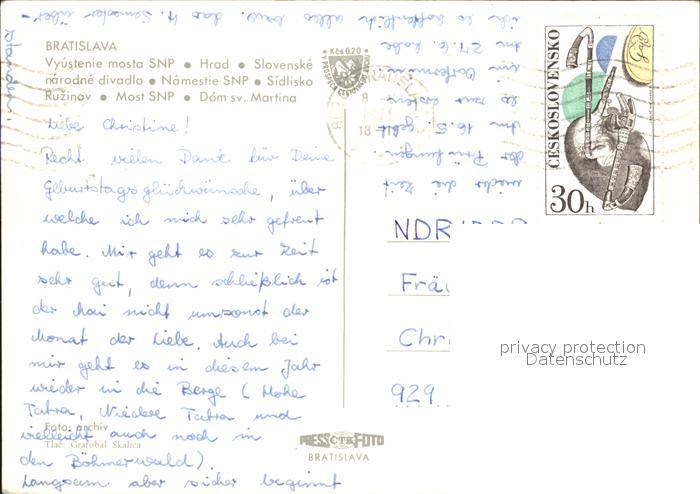 BRATISLAVA
Vyústenie mosta SNP ● Hrad ● Slovenské
národné divadlo ● Námestie SNP ● Sídlisko
Ružinov ● Most SNP ● Dóm sv. Martina
Liebe Christine!
Recht vielen Dank für Deine
Geburtstagsglückwünsche, über
welche ich mich sehr gefreut
habe. Mir geht es zur Zeit
sehr gut, denn schließlich ist
der Mai nicht umsonst der
Monat der Liebe. Auch bei
mir geht es in diesem Jahr
wieder in die Berge (Hohe
Tatra, Niedere Tatra und
vielleicht auch noch in
den Böhmerwald).
Langsam aber sicher beginnt
wieder die Zeit
der Prüfungen.
Am 16.5. geht
es zur ersten
ins
Am 27.6. habe
ich es hoffentlich alles bzw. das 4. Semester über-
standen.
Foto: archív
Tlač: Grafobal Skalica
PRESSFOTO
ČTK
BRATISLAVA
Kčs 0,20
BRATISLAVA
ČESKOSLOVENSKO
30h
NDR
Frä
Chri
929
privacy protection
Datenschutz